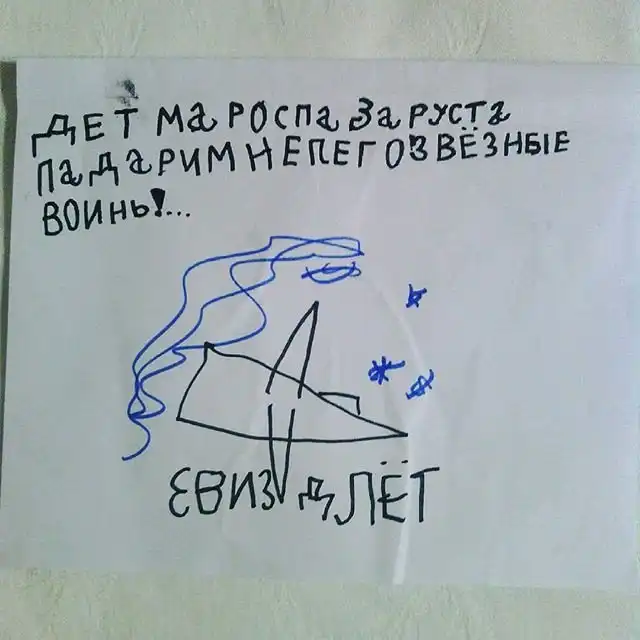 ДЕТ МА РОСПА ЗА РУСТА
ПАДАРИМНЕПЕГОЗВЁЗНЫЕ
ВОИНЫ!...
ЕВИЗДЛЁТ